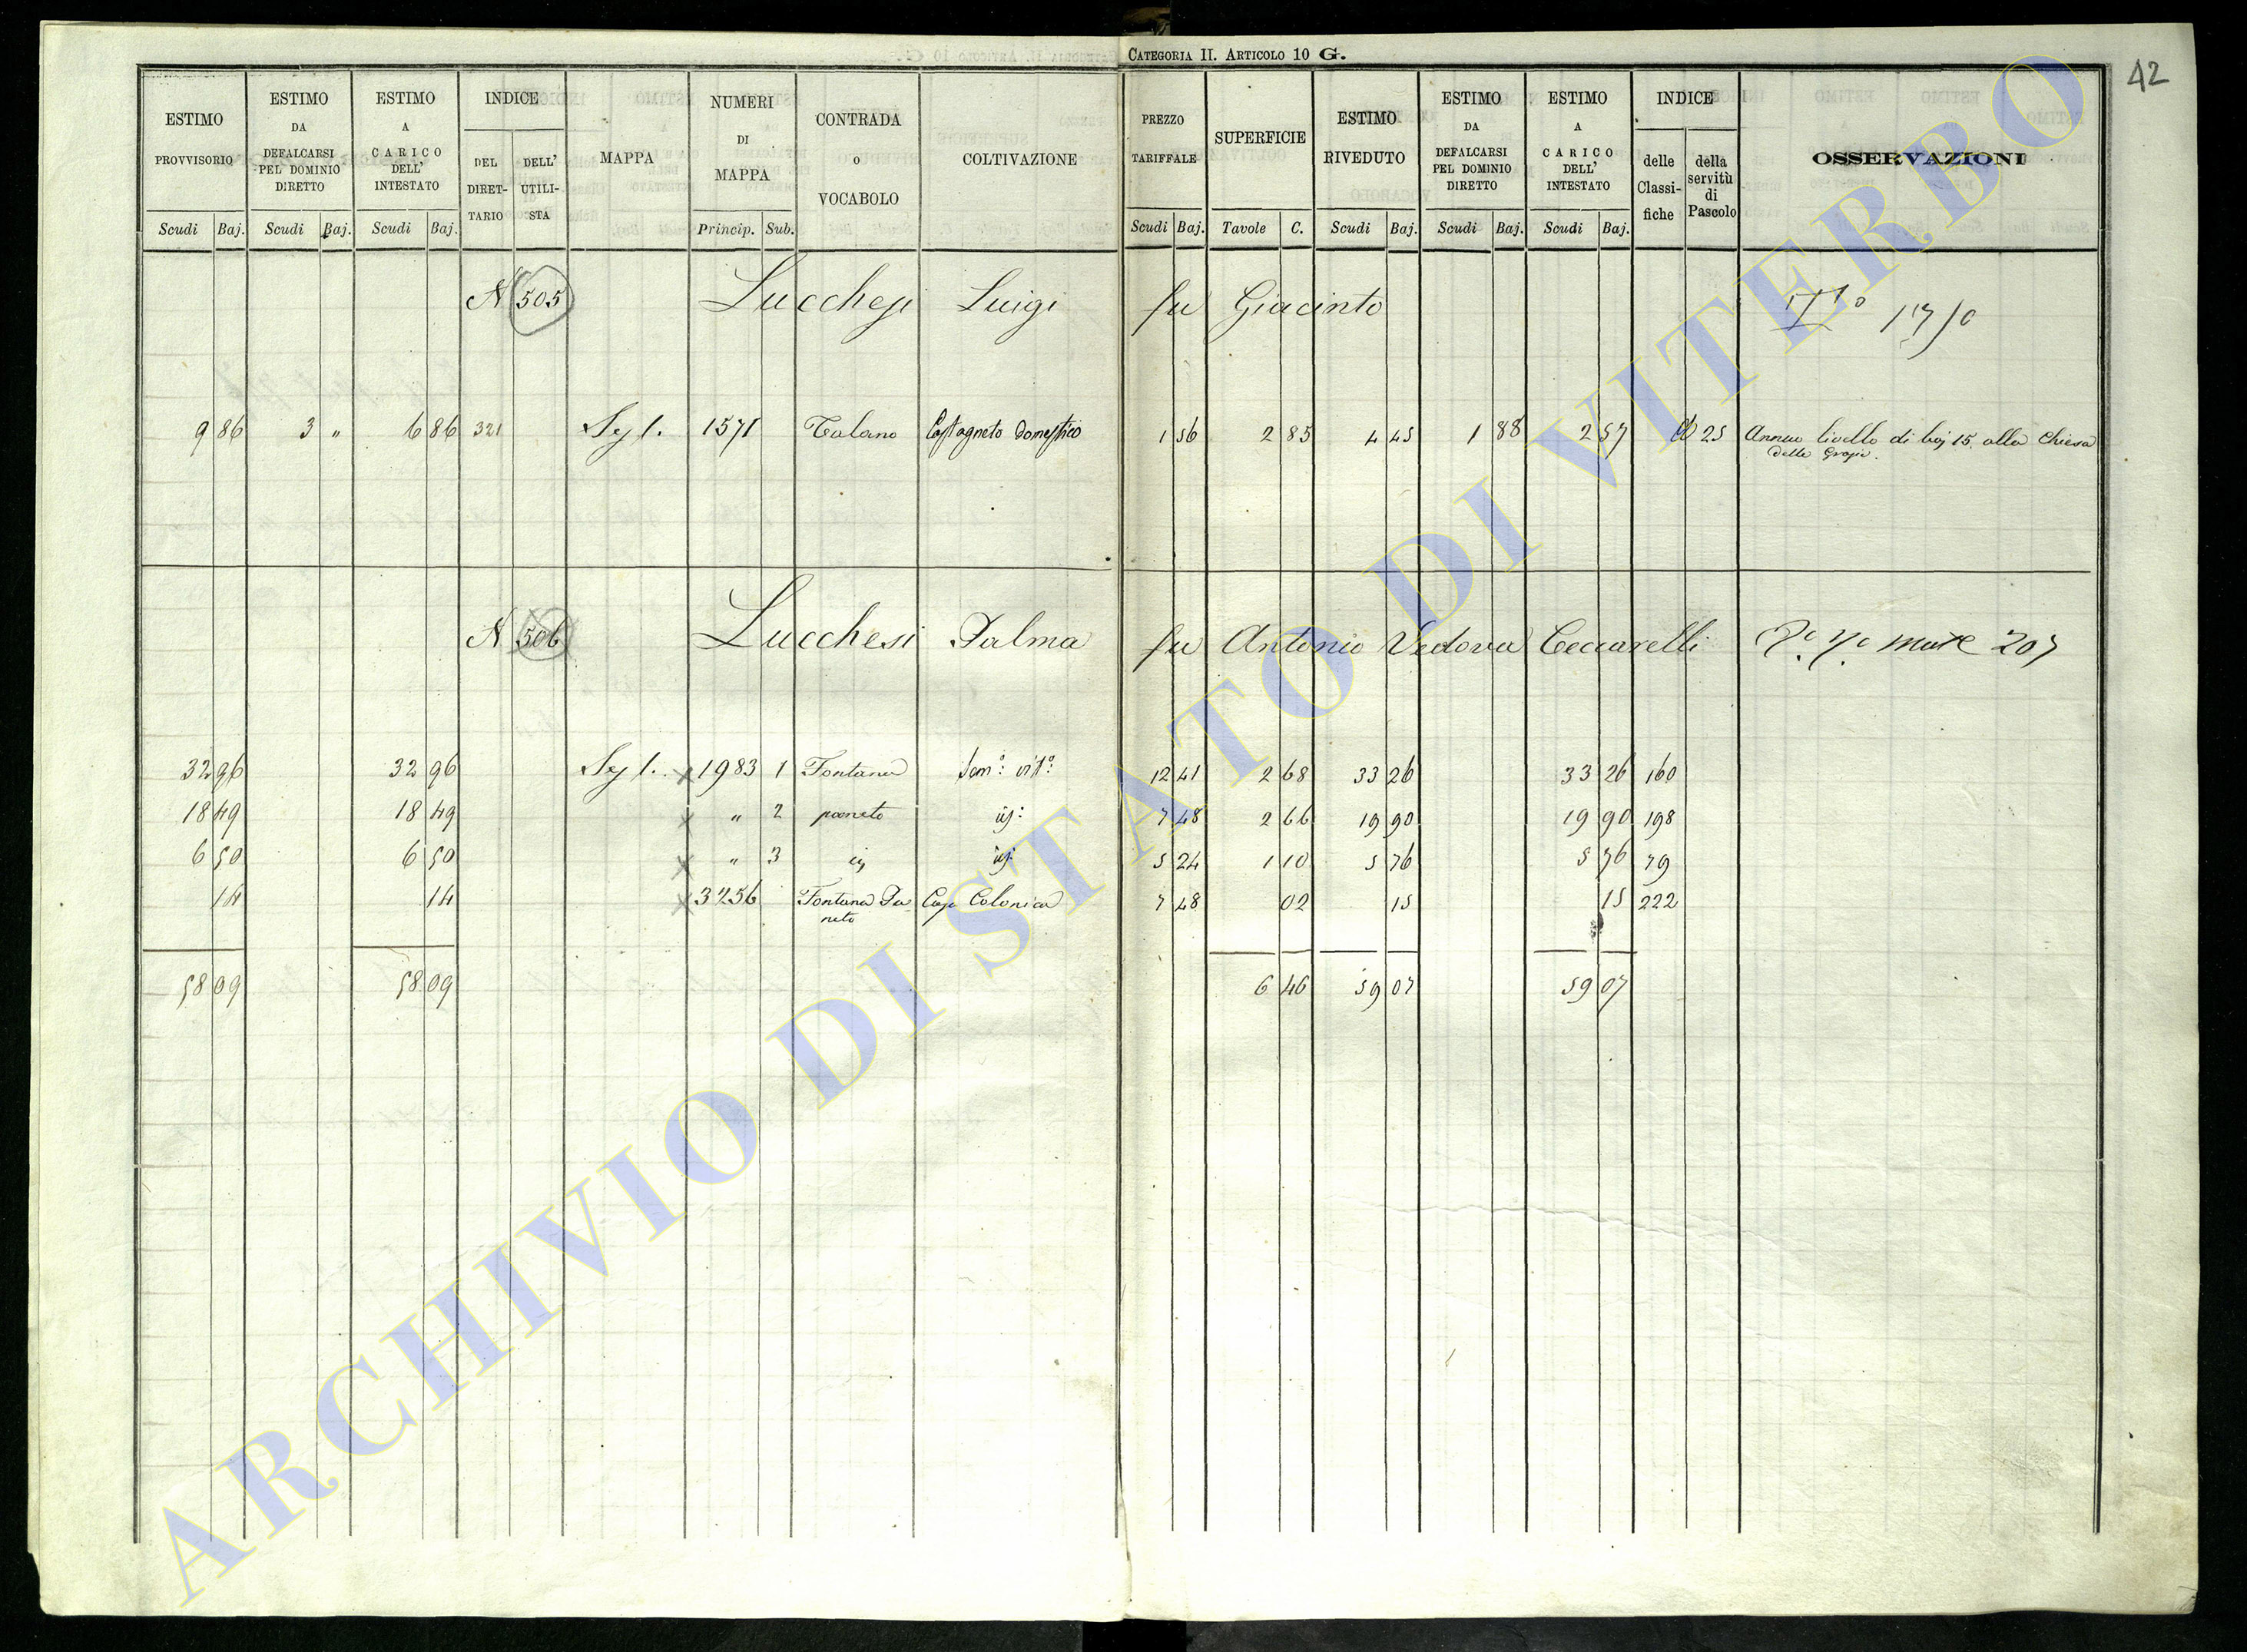 CATEGORIA II. ARTICOLO 10 G.
42
ESTIMO PROVVISORIO
ESTIMO DA DEFALCARSI PEL DOMINIO DIRETTO
ESTIMO A CARICO DELL' INTESTATO
INDICE
DEL DIRET-TARIO
DELL' UTILI-STA
MAPPA
NUMERI DI MAPPA
CONTRADA O VOCABOLO
COLTIVAZIONE
PREZZO TARIFFALE
SUPERFICIE
ESTIMO RIVEDUTO
ESTIMO DA DEFALCARSI PEL DOMINIO DIRETTO
ESTIMO A CARICO DELL' INTESTATO
INDICE
delle Classi-fiche
della servitù di Pascolo
OSSERVAZIONI
Scudi Baj. Scudi Baj. Scudi Baj. Princip. Sub. Scudi Baj. Tavole C. Scudi Baj. Scudi Baj. Scudi Baj.
N 505 Lucchesi Luigi fu Giacinto
9 86 3 " 6 86 321 Sez 1. 1571 Castagneto Domestico 1 56 2 85 4 45 1 88 2 57 25 Annuo livello di baj 15 alla Chiesa
delle Grazie.
N 506 Lucchesi Palma fu Antonio Vedova Ceccarelli 207
32 96 32 96 Sez 1. 1983 1 Fontana Sem.º vit.º 12 41 2 68 33 26 33 26 160
18 49 18 49 " 2 paneto 7 48 2 66 19 90 19 90 198
6 50 6 50 " 3 5 24 1 10 5 76 5 76 79
14 14 3256 Fontana Pa Casa Colonica 7 48 02 15 15 222
neto
58 09 58 09 6 46 59 07 59 07
ARCHIVIO DI STATO DI VITERBO